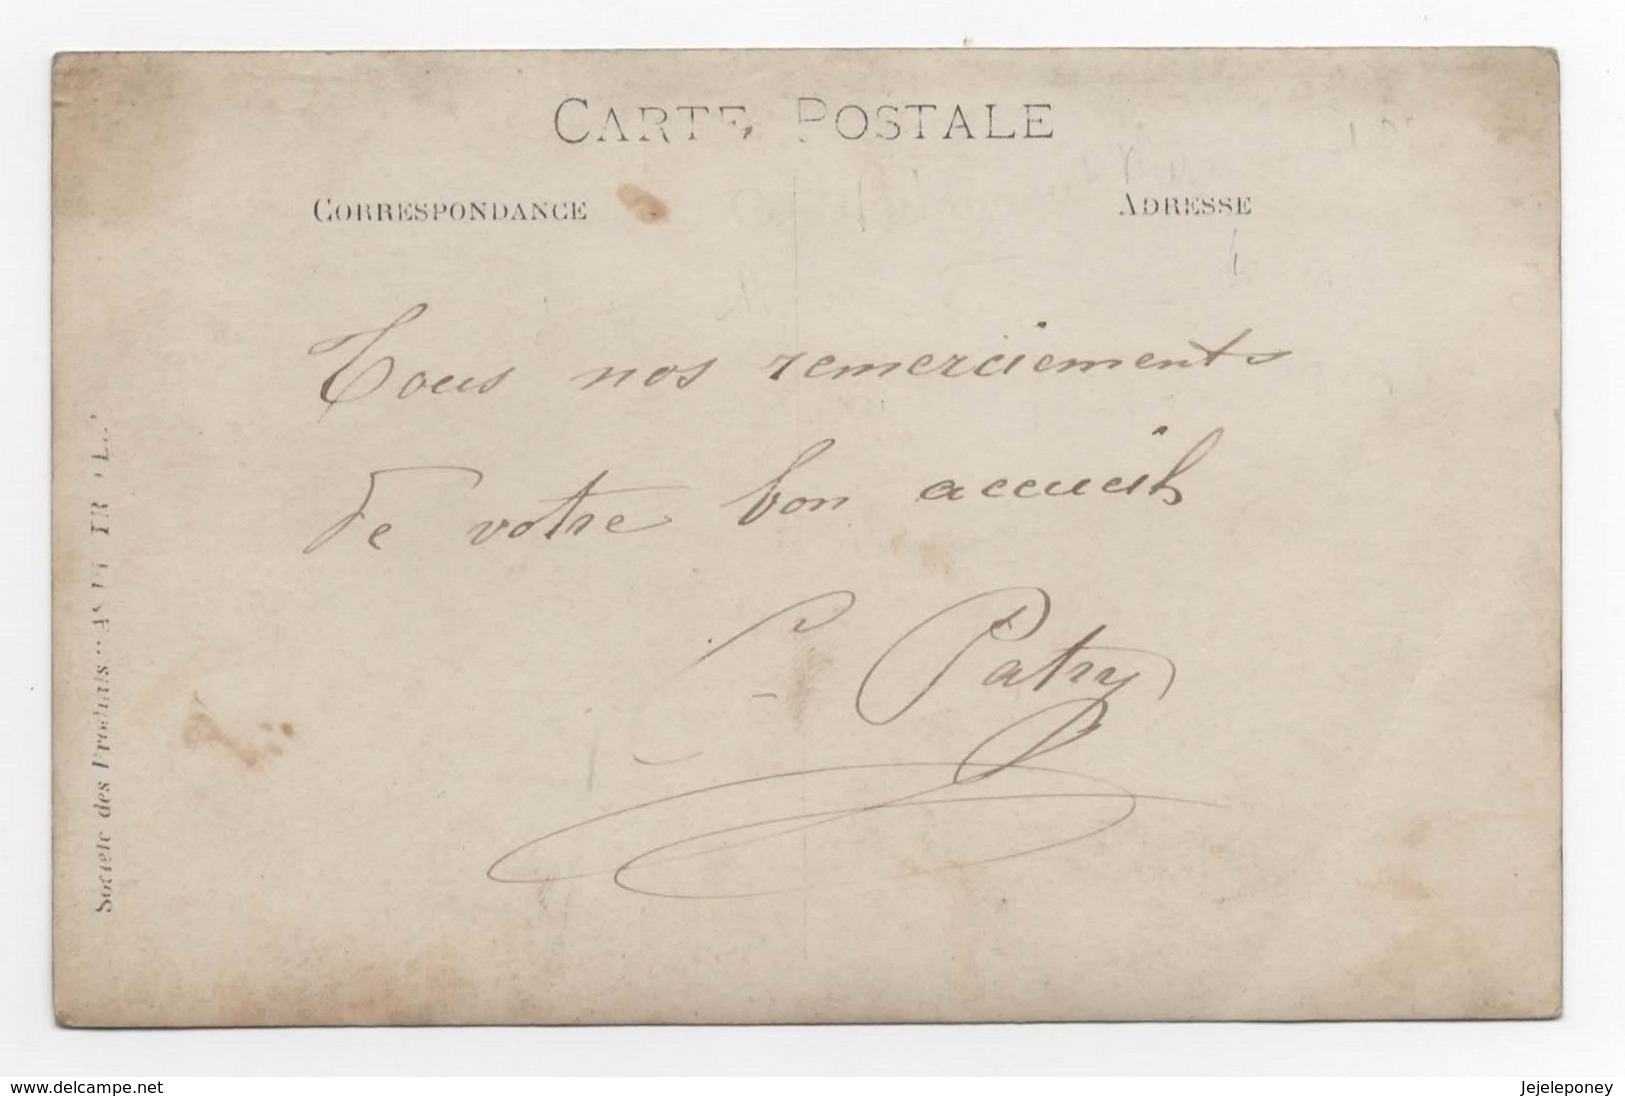 CARTE POSTALE
CORRESPONDANCE
ADRESSE
Tous nos remerciements
de votre bon accueil
Patry
Société des Produits
www.delcampe.net
Jejeleponey